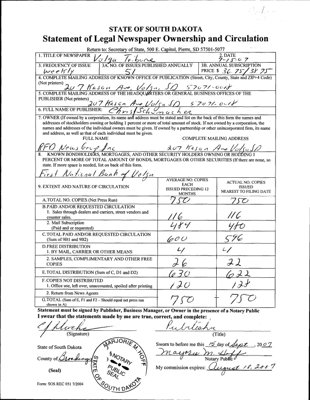 STATE OF SOUTH DAKOTA
Statement of Legal Newspaper Ownership and Circulation
Return to: Secretary of State, 500 E. Capitol, Pierre, SD 57501-5077
1. TITLE OF NEWSPAPER Volga Tribune 2. DATE
3. FREQUENCY OF ISSUE weekly 3A. NO. OF ISSUES PUBLISHED ANNUALLY 51 3B. ANNUAL SUBSCRIPTION PRICE $
4. COMPLETE MAILING ADDRESS OF KNOWN OFFICE OF PUBLICATION (Street, City, County, State and ZIP+4 Code)
(Not printers) 207 Kasan Ave, Volga, SD
5. COMPLETE MAILING ADDRESS OF THE HEADQUARTERS OF GENERAL BUSINESS OFFICES OF THE
PUBLISHER (Not printers) 207 Kasan Ave Volga SD
6. FULL NAME OF PUBLISHER: Chris Schumacher
7. OWNER (If owned by a corporation, its name and address must be stated and list on the back of this form the names and
addresses of stockholders owning or holding 1 percent or more of total amount of stock. If not owned by a corporation, the
names and addresses of the individual owners must be given. If owned by a partnership or other unincorporated firm, its name
and address, as well as that of each individual must be given.
FULL NAME COMPLETE MAILING ADDRESS
RFD Newsgroup Inc 207 Kasan Ave Volga SD
8. KNOWN BONDHOLDERS, MORTGAGES, AND OTHER SECURITY HOLDERS OWNING OR HOLDING 1
PERCENT OR MORE OF TOTAL AMOUNT OF BONDS, MORTGAGES OR OTHER SECURITIES (If there are none, so
state. If more space is needed, list on back of this form.
First National Bank of Volga
9. EXTENT AND NATURE OF CIRCULATION AVERAGE NO. COPIES EACH ISSUED PRECEDING 12 MONTHS ACTUAL NO. COPIES ISSUED NEAREST TO FILING DATE
A. TOTAL NO. COPIES (Net Press Run) 750 750
B. PAID AND/OR REQUESTED CIRCULATION
1. Sales through dealers and carriers, street vendors and
counter sales. 116 116
2. Mail Subscription
(Paid and or requested) 484 480
C. TOTAL PAID AND/OR REQUESTED CIRCULATION
(Sum of 9B1 and 9B2) 600 596
D. FREE DISTRIBUTION
1. BY MAIL, CARRIER OR OTHER MEANS 4 4
2. SAMPLES, COMPLIMENTARY AND OTHER FREE
COPIES 26 22
E. TOTAL DISTRIBUTION (Sum of C, D1 and D2) 630 622
F. COPIES NOT DISTRIBUTED
1. Office use, left over, unaccounted, spoiled after printing 120 128
2. Return from News Agents
G. TOTAL (Sum of E, F1 and F2 - Should equal net press run
shown in A) 750 750
Statement must be signed by Publisher, Business Manager, or Owner in the presence of a Notary Public
I swear that the statements made by me are true, correct, and complete:
Publisher
(Signature) (Title)
State of South Dakota
County of Brookings
(Seal)
MARJORIE M. HOFF
NOTARY PUBLIC
SEAL
STATE OF SOUTH DAKOTA
Sworn to before me this 15 day of Sept, 2007
Marjorie M. Hoff
Notary Public
My commission expires: August
Form: SOS REC 051 5/2004